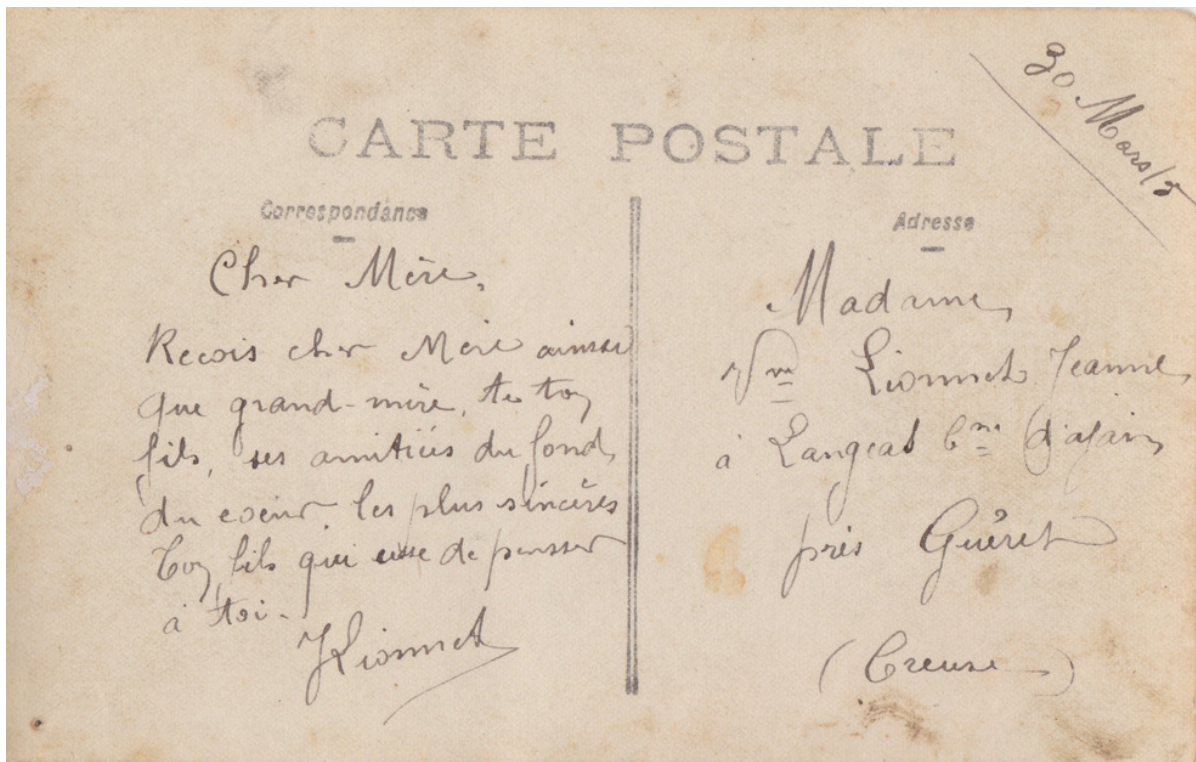 30 Mars/5
CARTE POSTALE
Correspondance
Cher Mère,
Recois cher Mère ainsi
que grand-mère, de ton
fils, ses amitiés du fond
du coeur, les plus sincères
Ton fils qui de pensser
à toi.
JLionnet
Adresse
Madame
Vve Lionnet Jeanne
à Langeat Cne d'ajain
près Guéret
(Creuse)